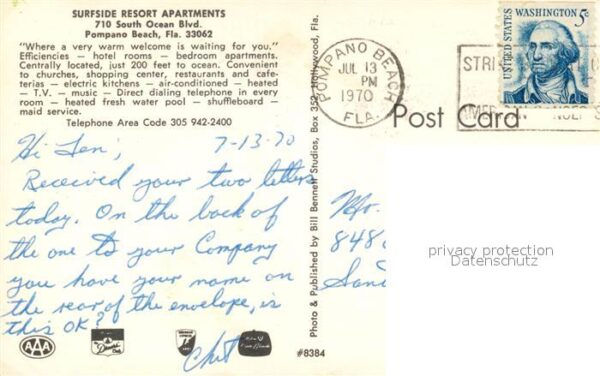 SURFSIDE RESORT APARTMENTS
710 South Ocean Blvd.
Pompano Beach, Fla. 33062
"Where a very warm welcome is waiting for you."
Efficiencies — hotel rooms — bedroom apartments.
Centrally located, just 200 feet to ocean. Convenient
to churches, shopping center, restaurants and cafe-
terias — electric kitchens — air-conditioned — heated
— T.V. — music — Direct dialing telephone in every
room — heated fresh water pool — shuffleboard —
maid service.
Telephone Area Code 305 942-2400
7-13-70
Hi Len;
Received your two letters
today. On the back of
the one to your Company
you have your name on
the rear of the envelope, is
this OK?
Chet
AAA
#8384
Photo & Published by Bill Bennett Studios, Box 352, Hollywood, Fla.
POMPANO BEACH
JUL 13
PM
1970
FLA.
Post Card
UNITED STATES
WASHINGTON 5c
STRI
Mr.
848
San
privacy protection
Datenschutz